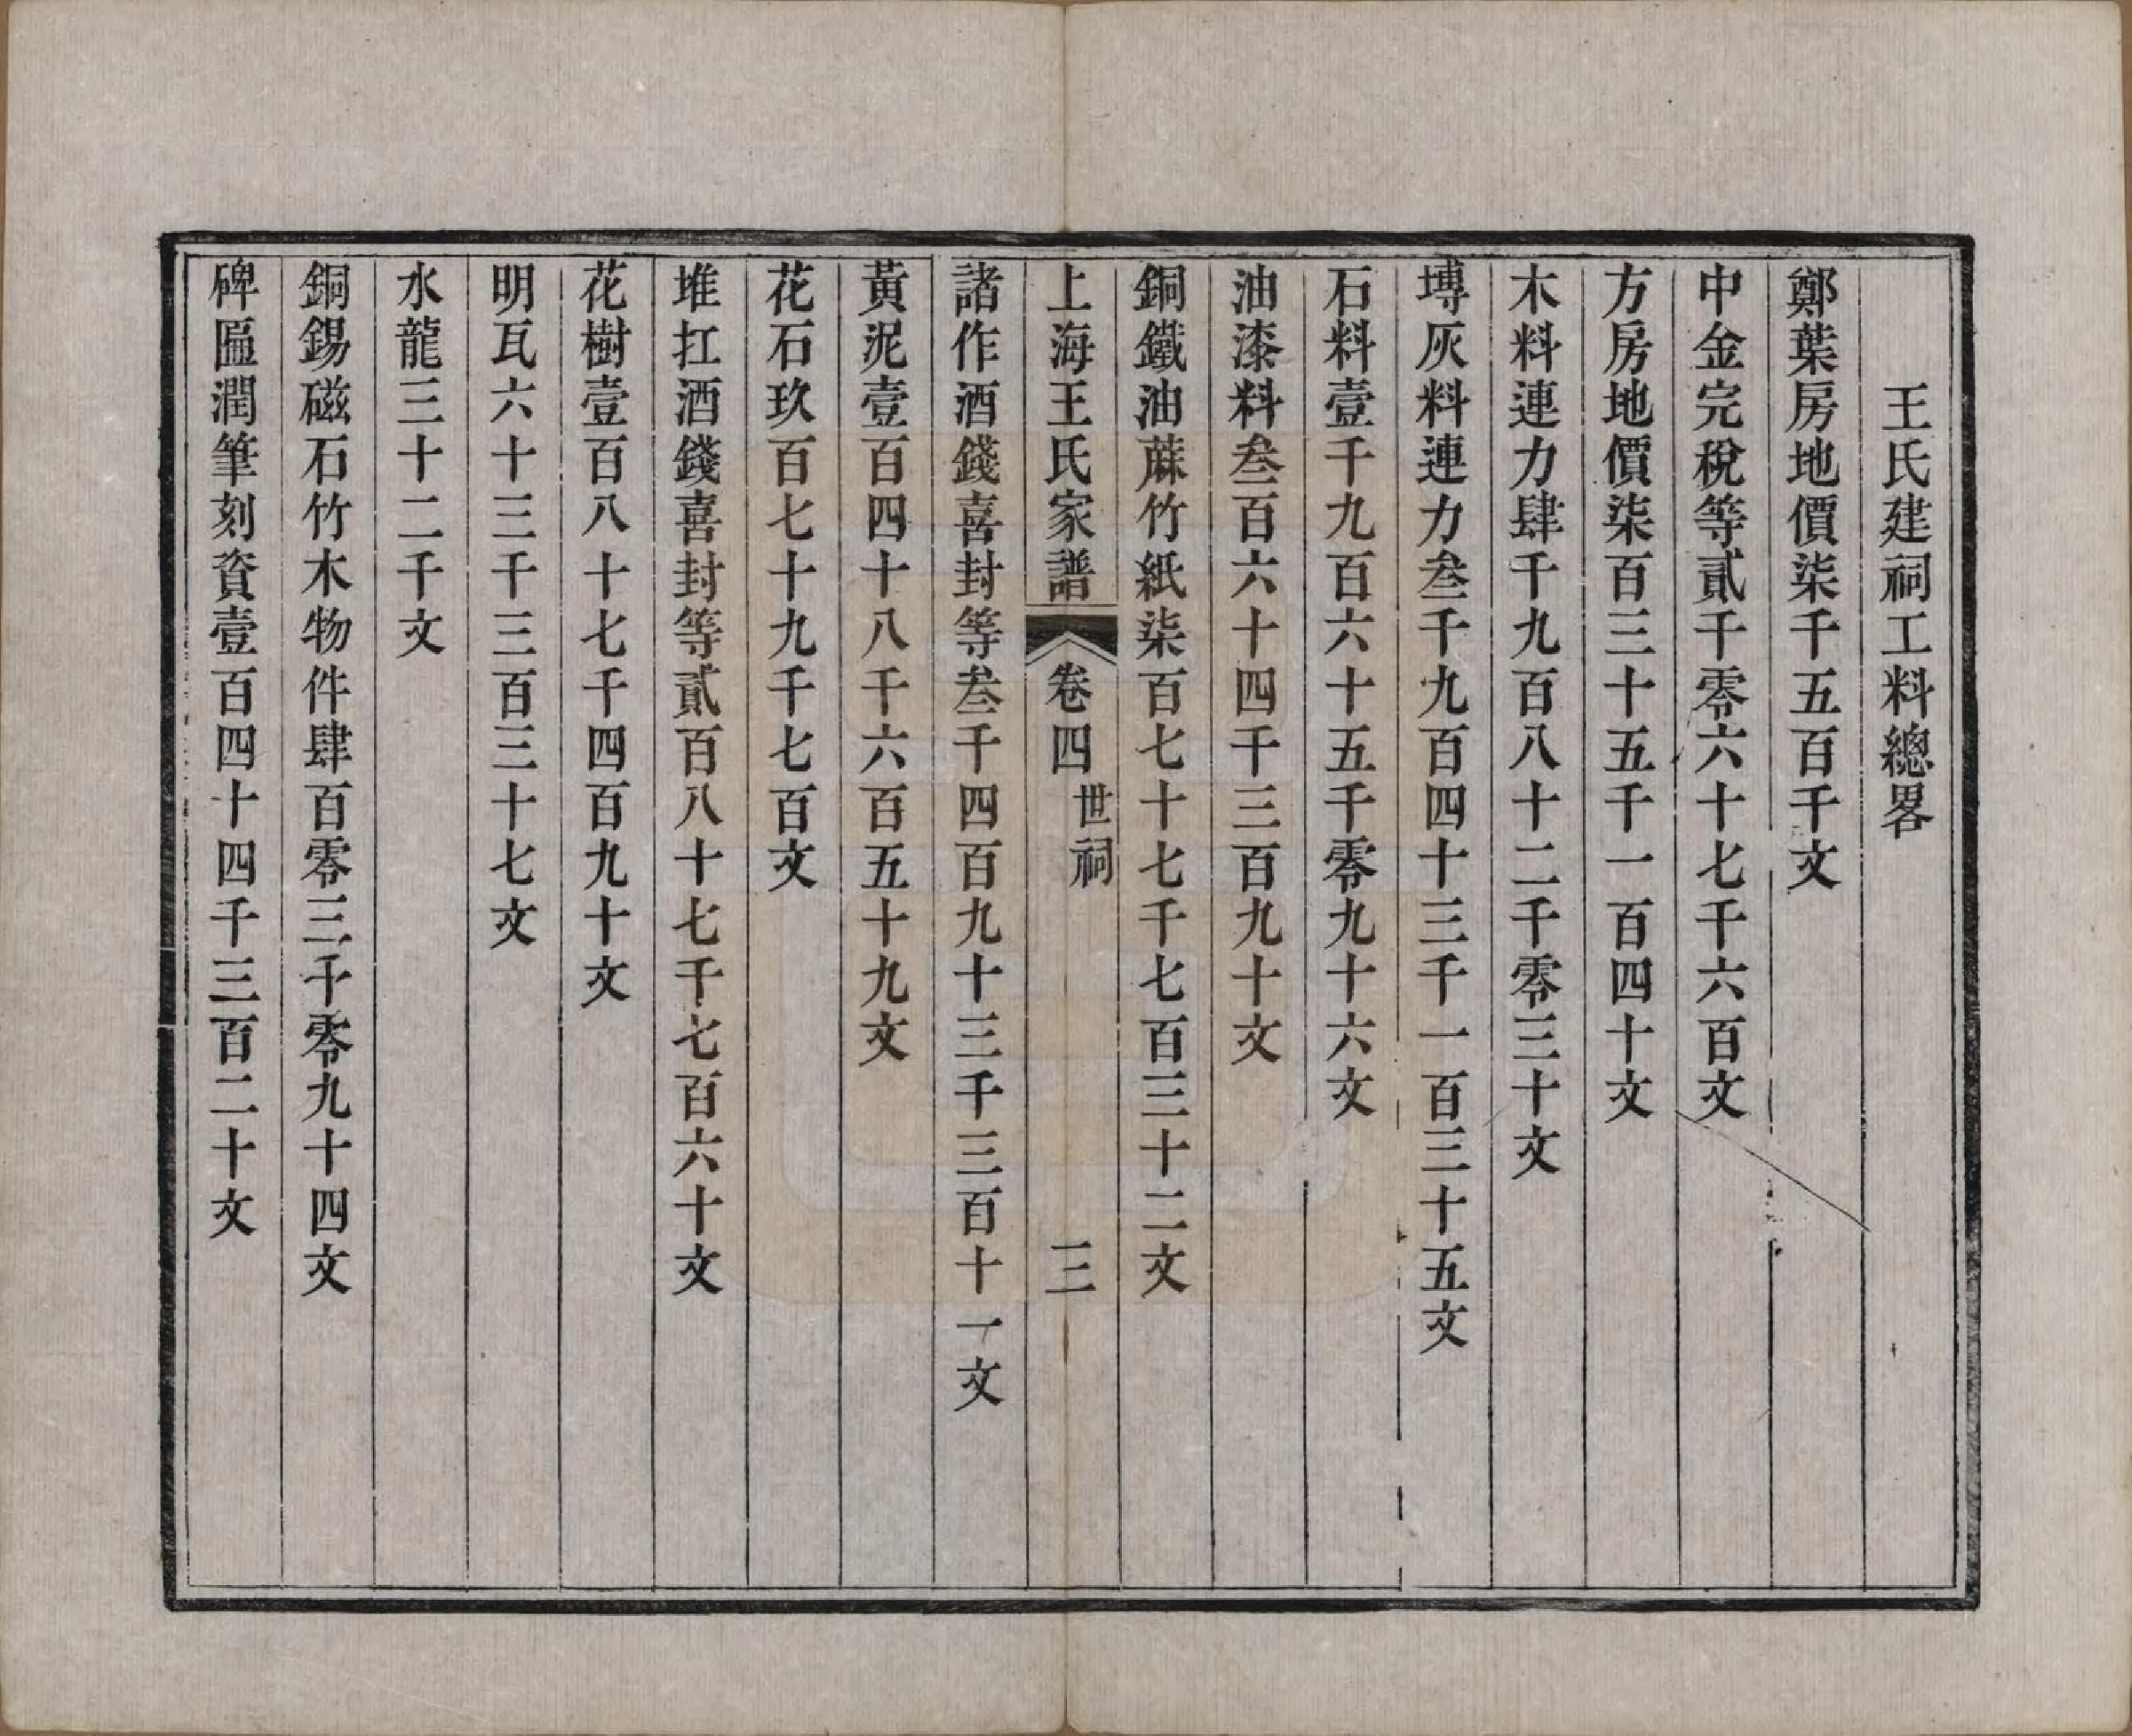 王氏建祠工料總畧
鄭葉房地價柒千五百千文
中金完稅等貳千零六十七千六百文
方房地價柒百三十五千一百四十文
木料連力肆千九百八十二千零三十文
塼灰料連力叁千九百四十三千一百三十五文
石料壹千九百六十五千零九十六文
油漆料叁百六十四千三百九十文
銅鐵油蔴竹紙柒百七十七千七百三十二文
上海王氏家譜 卷四 世祠 三
諸作酒錢喜封等叁千四百九十三千三百十一文
黃泥壹百四十八千六百五十九文
花石玖百七十九千七百文
堆扛酒錢喜封等貳百八十七千七百六十文
花樹壹百八十七千四百九十文
明瓦六十三千三百三十七文
水龍三十二千文
銅錫磁石竹木物件肆百零三千零九十四文
碑匾潤筆刻資壹百四十四千三百二十文